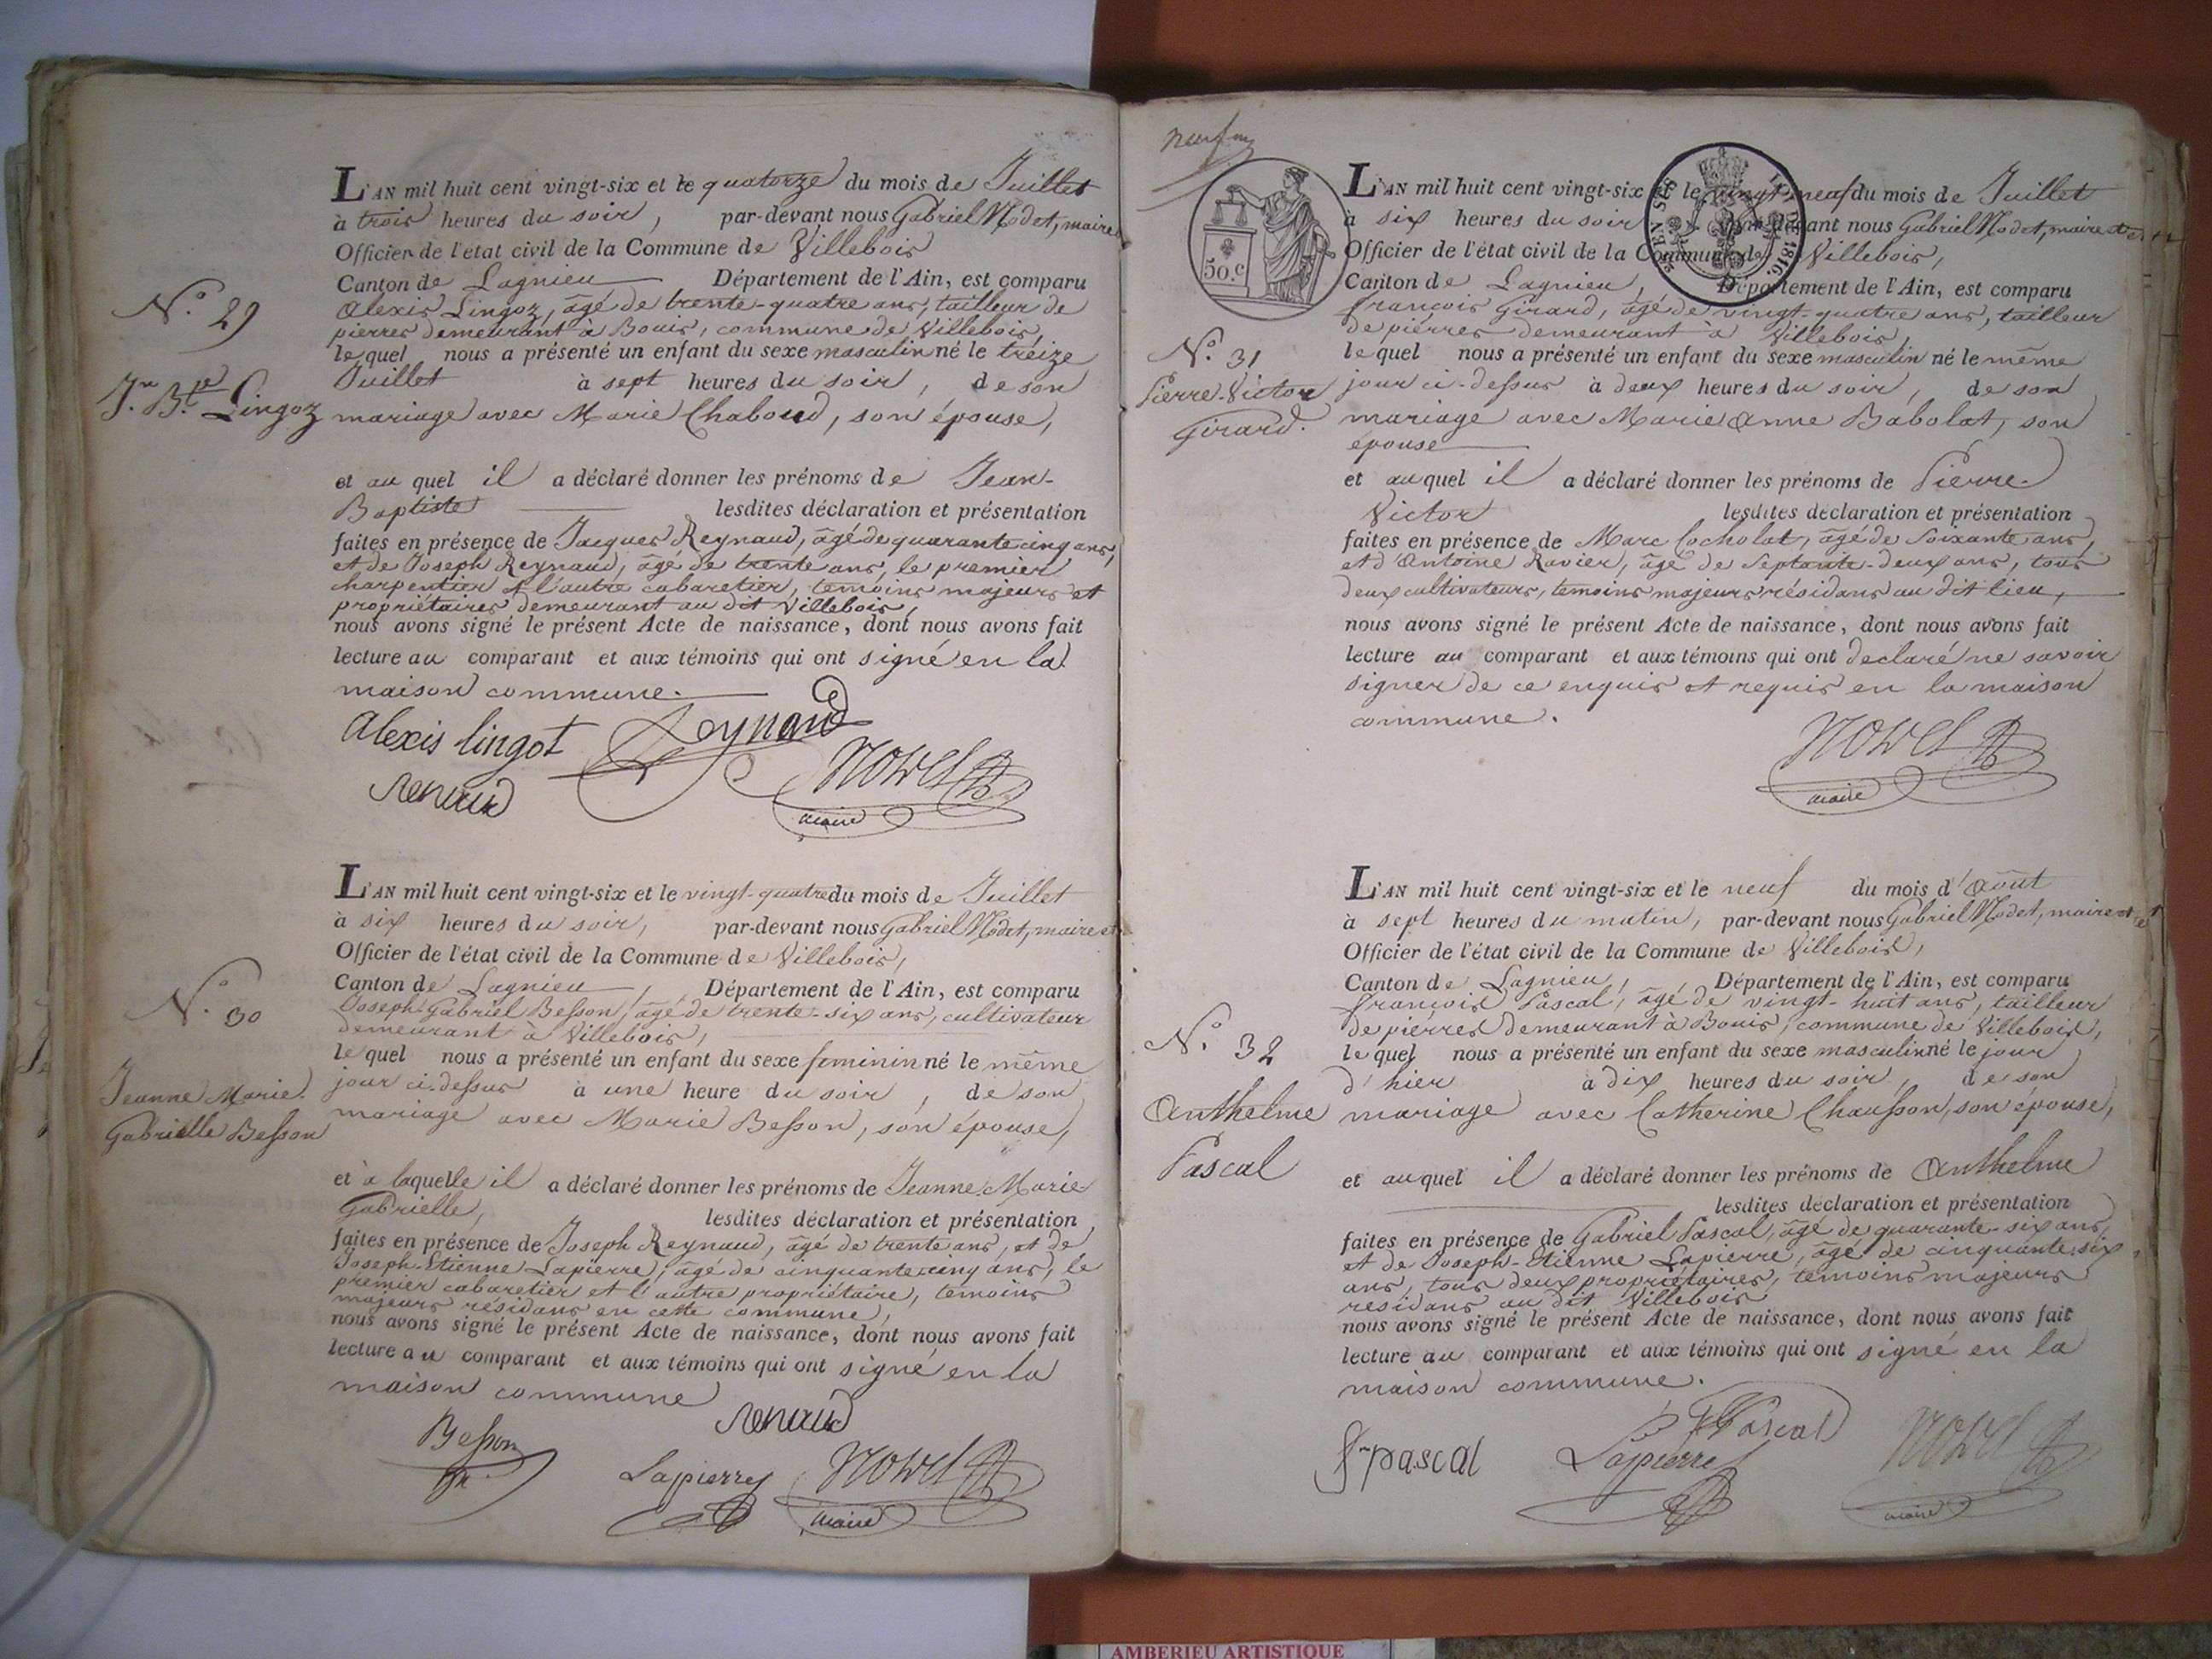 N.º 29
J.n B.te Lingoz
L'AN mil huit cent vingt-six et le quatorze du mois de Juillet
à trois heures du soir, par-devant nous Gabriel Nodet, maire
Officier de l'état civil de la Commune de Villebois
Canton de Lagnieu Département de l'Ain, est comparu
Alexis Lingoz, âgé de trente-quatre ans, tailleur de
pierres demeurant à Bouis, commune de Villebois,
lequel nous a présenté un enfant du sexe masculin né le treize
Juillet à sept heures du soir, de son
mariage avec Marie Chaboud, son épouse,
et au quel il a déclaré donner les prénoms de Jean-
Baptiste lesdites déclaration et présentation
faites en présence de Jacques Reynaud, âgé de quarante cinq ans,
et de Joseph Reynaud, âgé de trente ans, le premier
charpentier et l'autre cabaretier, temoins majeurs et
propriétaires demeurant au dit Villebois,
nous avons signé le présent Acte de naissance, dont nous avons fait
lecture au comparant et aux témoins qui ont signé en la
maison commune.
alexis lingot Reynaud
renaud
maire
N.º 30
Jeanne Marie
Gabrielle Besson
L'AN mil huit cent vingt-six et le vingt-quatre du mois de Juillet
à six heures du soir, par-devant nous Gabriel Nodet, maire et
Officier de l'état civil de la Commune de Villebois,
Canton de Lagnieu, Département de l'Ain, est comparu
Joseph-Gabriel Besson, âgé de trente-six ans, cultivateur
demeurant à Villebois,
lequel nous a présenté un enfant du sexe feminin né le même
jour ci-dessus à une heure du soir, de son
mariage avec Marie Besson, son épouse,
et à laquelle il a déclaré donner les prénoms de Jeanne-Marie-
Gabrielle, lesdites déclaration et présentation
faites en présence de Joseph Reynaud, âgé de trente ans, et de
Joseph-Etienne Lapierre, âgé de cinquante cinq ans, le
premier cabaretier et l'autre propriétaire, temoins
majeurs résidans en cette commune,
nous avons signé le présent Acte de naissance, dont nous avons fait
lecture au comparant et aux témoins qui ont signé en la
maison commune
Besson renaud
Lapierre
maire
neuf
50.c
1816
N.º 31
Pierre-Victor
Girard.
L'AN mil huit cent vingt-six et le vingt-neuf du mois de Juillet
à six heures du soir par-devant nous Gabriel Nodet, maire et
Officier de l'état civil de la Commune de Villebois,
Canton de Lagnieu, Département de l'Ain, est comparu
françois Girard, âgé de vingt-quatre ans, tailleur
de pierres demeurant à Villebois,
lequel nous a présenté un enfant du sexe masculin né le même
jour ci-dessus à deux heures du soir, de son
mariage avec Marie Anne Babolat, son
épouse
et auquel il a déclaré donner les prénoms de Pierre-
Victor lesdites déclaration et présentation
faites en présence de Marc Cocholat, âgé de soixante ans,
et d'Antoine Ravier, âgé de septante-deux ans, tous
deux cultivateurs, temoins majeurs résidans au dit lieu,
nous avons signé le présent Acte de naissance, dont nous avons fait
lecture au comparant et aux témoins qui ont declaré ne savoir
signer de ce enquis et requis en la maison
commune.
maire
N.º 32
Anthelme
Pascal
L'AN mil huit cent vingt-six et le neuf du mois d'Août
à sept heures du matin, par-devant nous Gabriel Nodet, maire et
Officier de l'état civil de la Commune de Villebois,
Canton de Lagnieu, Département de l'Ain, est comparu
françois Pascal, âgé de vingt-huit ans, tailleur
de pierres demeurant à Bouis, commune de Villebois,
lequel nous a présenté un enfant du sexe masculin né le jour
d'hier à dix heures du soir, de son
mariage avec Catherine Chausson, son épouse,
et auquel il a déclaré donner les prénoms de Anthelme
lesdites déclaration et présentation
faites en présence de Gabriel Pascal, âgé de quarante-six ans,
et de Joseph-Etienne Lapierre, âgé de cinquante six
ans, tous deux propriétaires, temoins majeurs
résidans au dit Villebois
nous avons signé le présent Acte de naissance, dont nous avons fait
lecture au comparant et aux témoins qui ont signé en la
maison commune.
fr pascal Lapierre Pascal
maire
AMBERIEU ARTISTIQUE